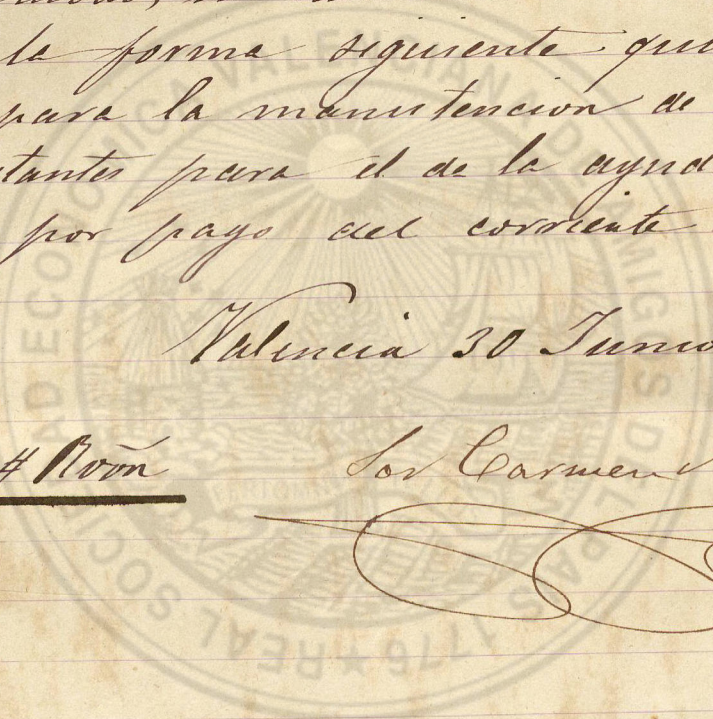 la forma siguiente qui
para la manutencion de
tantes para el de la ayud
por pago del corriente
Valencia 30 Junio
# Rvon
Sor Carmen
REAL SOCIEDAD ECONOMICA VALENCIANA DE AMIGOS DEL PAIS 1776